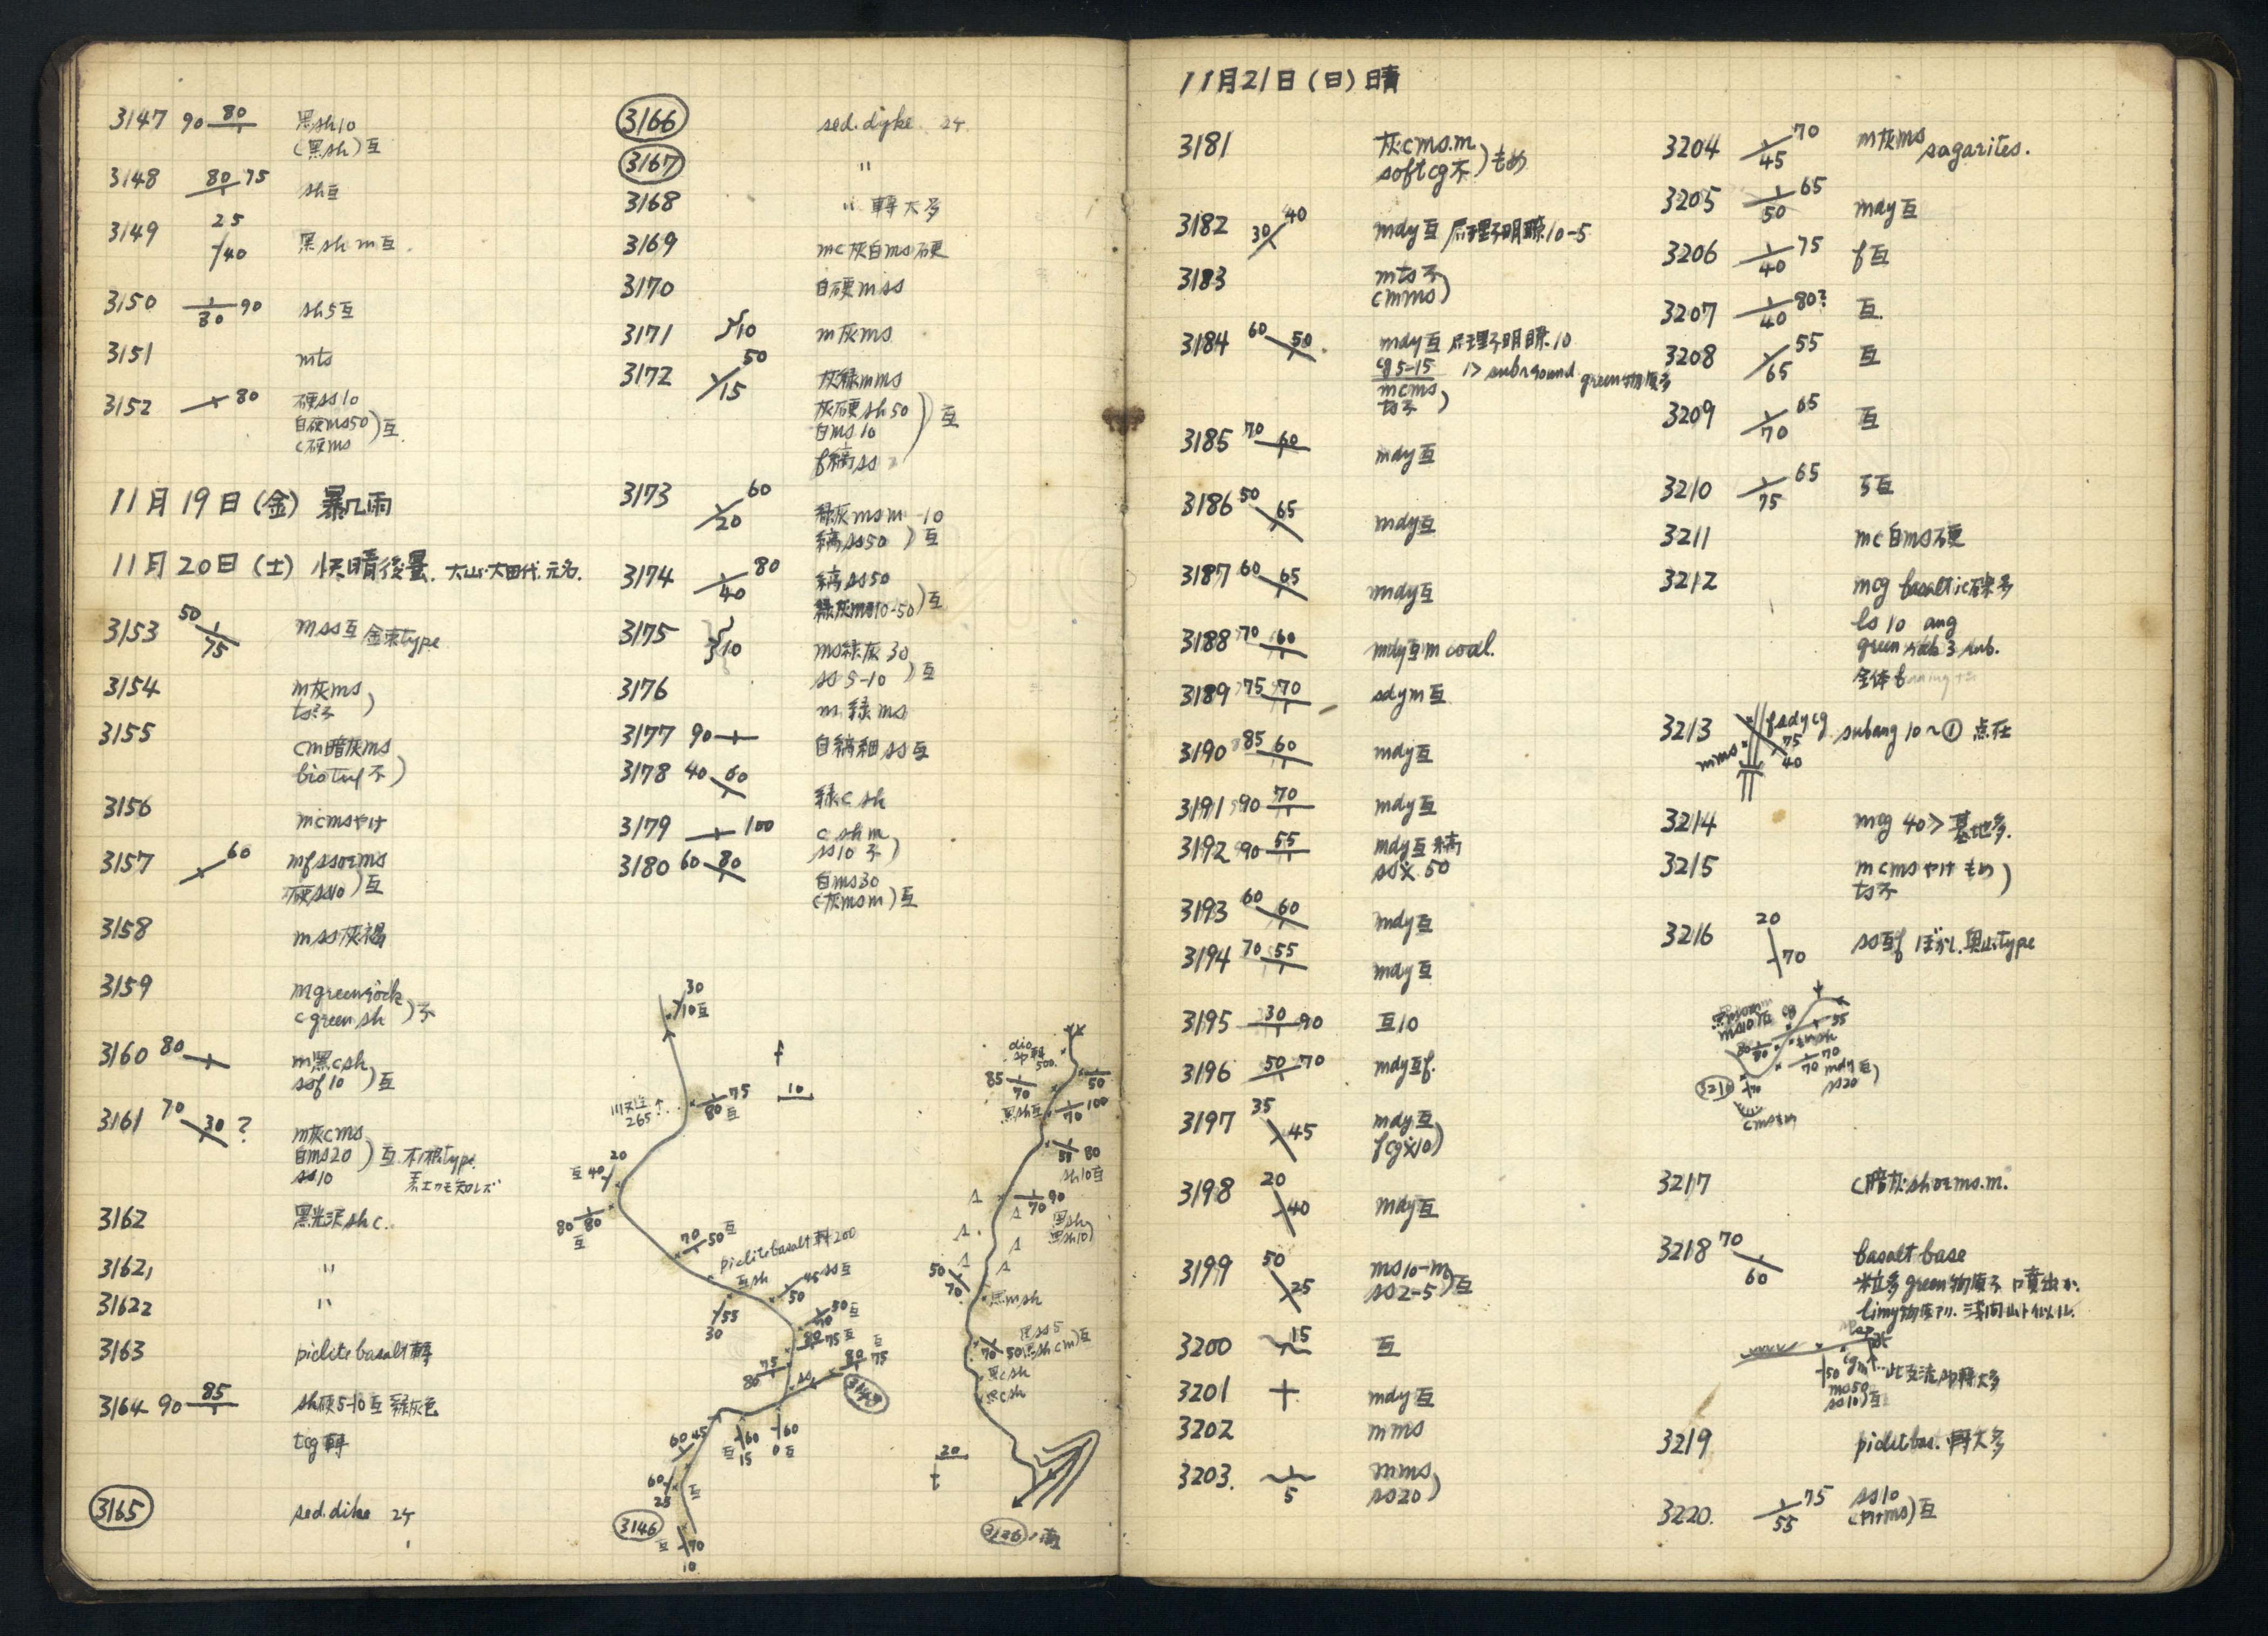 3147 90 80 黒sh10
(黒sh)互
3148 80 75 sh互
3149 25 40 黒sh m互.
3150 80 90 sh5互
3151 mts
3152 80 硬ss10
白硬ms50)互.
c硬ms
11月19日(金) 暴風雨
11月20日(土) 快晴後曇. 大山.太田代.元名.
3153 50 75 mss互 金束type
3154 m灰ms
ts不)
3155 cm暗灰ms
biotuf不)
3156 mcmsやけ
3157 60 mfssorms
硬ss10)互
3158 mss灰褐
3159 mgreenrock
c green sh)不
3160 80 m黒csh
ssf10)互
3161 70 30? m灰cms
白ms20)互.木根type.
ss10
3162 黒光沢shc.
3162₁ "
3162₂ "
3163 piclite basalt轉
3164 90 85 sh硬5-10互 緑灰色
tcg轉
3165 sed.dike 2ケ
3166 sed.dyke 2ケ
3167 "
3168 " 轉大多
3169 mc灰白ms硬
3170 白硬mss
3171 10 m灰ms
3172 50 15 灰緑mms
灰硬sh50
白ms10)互
f縞ss
3173 60 20 緑灰msm-10
縞ss50)互
3174 80 40 縞ss50
緑灰ms10-50)互
3175 10 ms緑灰30
ss5-10)互
3176 m緑ms
3177 90 白縞細ss互
3178 40 60 緑c sh
3179 100 c shm
ss10不)
3180 60 80 白ms30
(灰msm)互
30
10互
75
80 互
265
f
10
20
互40
80 80
互
70 50互
piclite basalt轉200
互sh
45 ss互
50
55
30
50互
80 75互
互
75
85
80 75
ss
3148
60 45
60
互 15
60
0互
60
25
互
3146
互 70
10
500
85
70
50
黒sh互
100
70
55 80
sh10互
90
70
黒sh
黒sh10)
50
70
黒msh
黒ss5
70 50 黒shcm)互
黒csh
黒csh
20
t
11月21日(日)晴
3181 灰cms.m
softcg不)もめ
3182 30 40 mdy互 层理不明瞭10-5
3183 mts不
cmms)
3184 60 50 mdy互 层理不明瞭.10
cg5-15 1> subround green物质多
mcms
ts不)
3185 70 60 mdy互
3186 50 65 mdy互
3187 60 65 mdy互
3188 70 60 mdy互m coal.
3189 75 70 sdym互
3190 85 60 mdy互
3191 90 70 mdy互
3192 90 55 mdy互縞
ss 50
3193 60 60 mdy互
3194 70 55 mdy互
3195 30 90 互10
3196 50 70 mdy互f.
3197 35 45 mdy互
fcg 10)
3198 20 40 mdy互
3199 50 25 ms10-m
ss2-5)互
3200 15 互
3201 mdy互
3202 mms
3203. 5 mms
ss20)
3204 70 45 m灰ms sagarites.
3205 65 50 mdy互
3206 75 40 f互
3207 80? 40 互.
3208 55 65 互
3209 65 70 互
3210 65 75 互
3211 mc白ms硬
3212 mcg basaltic礫多
ls 10 ang
green 3 sub.
全体
3213 fsdycg subang 10~① 点在
75
40
mms
3214 mcg 40> 基地多.
3215 mcmsやけもめ)
ts不
3216 20 70 ss互f ぼかし.奥山type
ms10互
cg
35
80
80
70
70 mdy互)
ss20
3216
70
cms
3217 c暗灰shorms.m.
3218 70 60 basalt base
粒多green物质不 噴出か.
limy物质アリ.
50
ms50
ss10)互
3219 piclitbas.轉大多
3220. 75 55 ss10
(mms)互